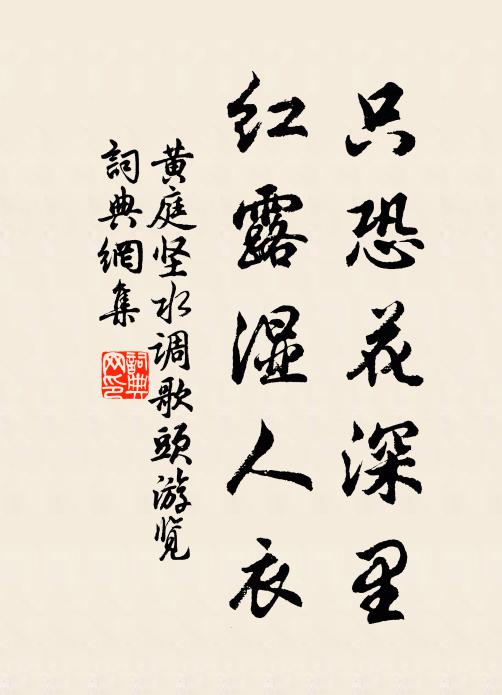 只恐花深里
红露湿人衣
黄庭坚水调歌头游览
詞典網集
詞典网印